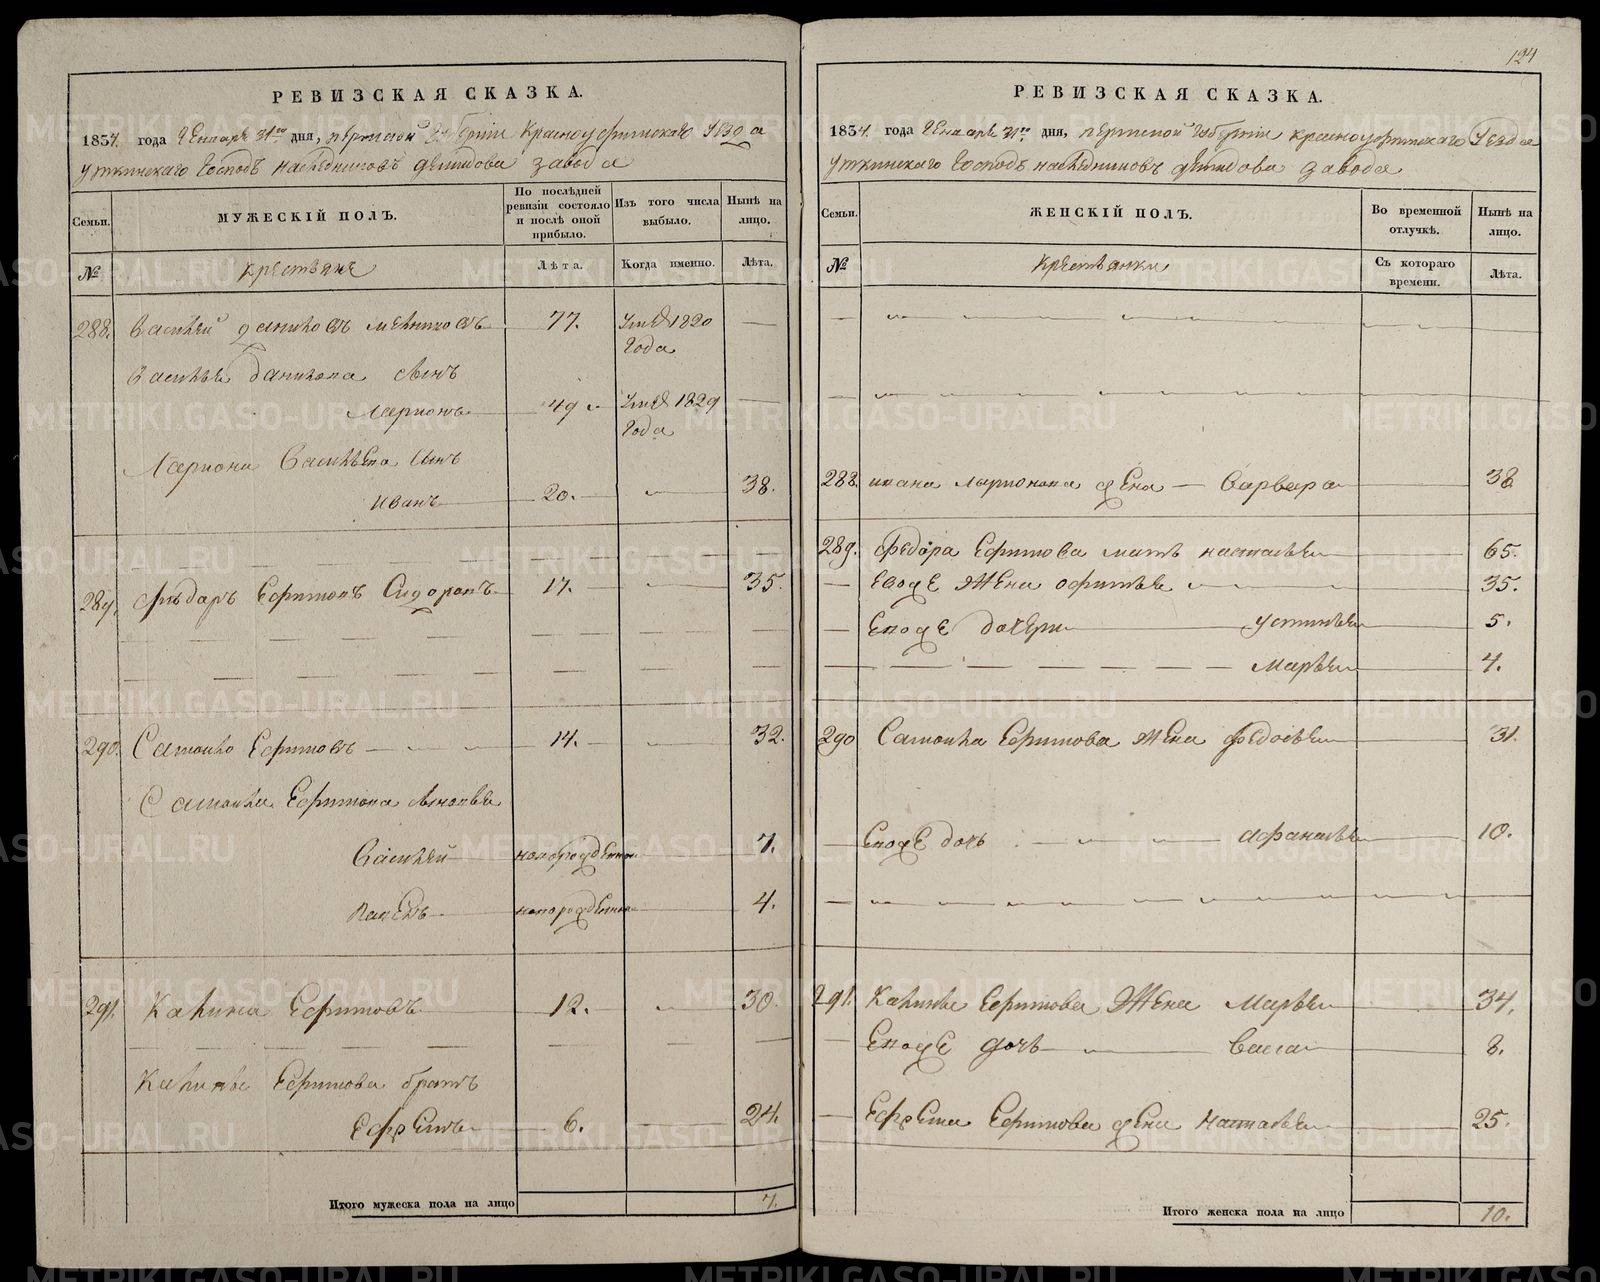 124
РЕВИЗСКАЯ СКАЗКА.
1834. года Генваря 31го дня, пермской Губернии Красноуфимскаго Уезда
уткинскаго Господъ наследниковъ демидова завода
Семьи.
МУЖЕСКІЙ ПОЛЪ.
По послѣдней ревизіи состояло и послѣ оной прибыло.
Изъ того числа выбыло.
Нынѣ на лицо.
№
Крестьяне
Лѣта.
Когда именно.
Лѣта.
288. Василей даниловъ мелниковъ 77. 1820 Года —
Василья данилова сынъ
Ларионъ 49 1829 Года —
Лариона Васильева сынъ
иванъ 20. — 38.
289. Федаръ Ефимовъ Сидоровъ 17. — 35.
290. Самоило Ефимовъ 14. — 32.
Самоила Ефимова сыновья
Василей новорожденной 7.
Павелъ новорожденной 4.
291. Калина Ефимовъ 12. — 30.
Калины Ефимова братъ
Ефремъ 6. 24.
Итого мужеска пола на лицо 7.
РЕВИЗСКАЯ СКАЗКА.
1834. года Генваря 31го дня, пермской Губернии красноуфимскаго Уезда
уткинскаго Господъ наследниковъ демидова завода
Семьи.
ЖЕНСКІЙ ПОЛЪ.
Во временной отлучкѣ.
Нынѣ на лицо.
№
Крестьянки
Съ котораго времени.
Лѣта.
288. ивана ларионова жена — Варвара 38
289. Федора Ефимова мать наталья 65.
Евоже Жена офимья 35.
Евоже дочери устинья 5.
марья 4.
290 Самоила Ефимова Жена федосья 31.
Евоже дочь афанасья 10.
291. Калины Ефимова Жена Марья 34.
Евоже дочь васса 8.
Ефрема Ефимова жена наталья 25.
Итого женска пола на лицо 10.
METRIKI.GASO-URAL.RU